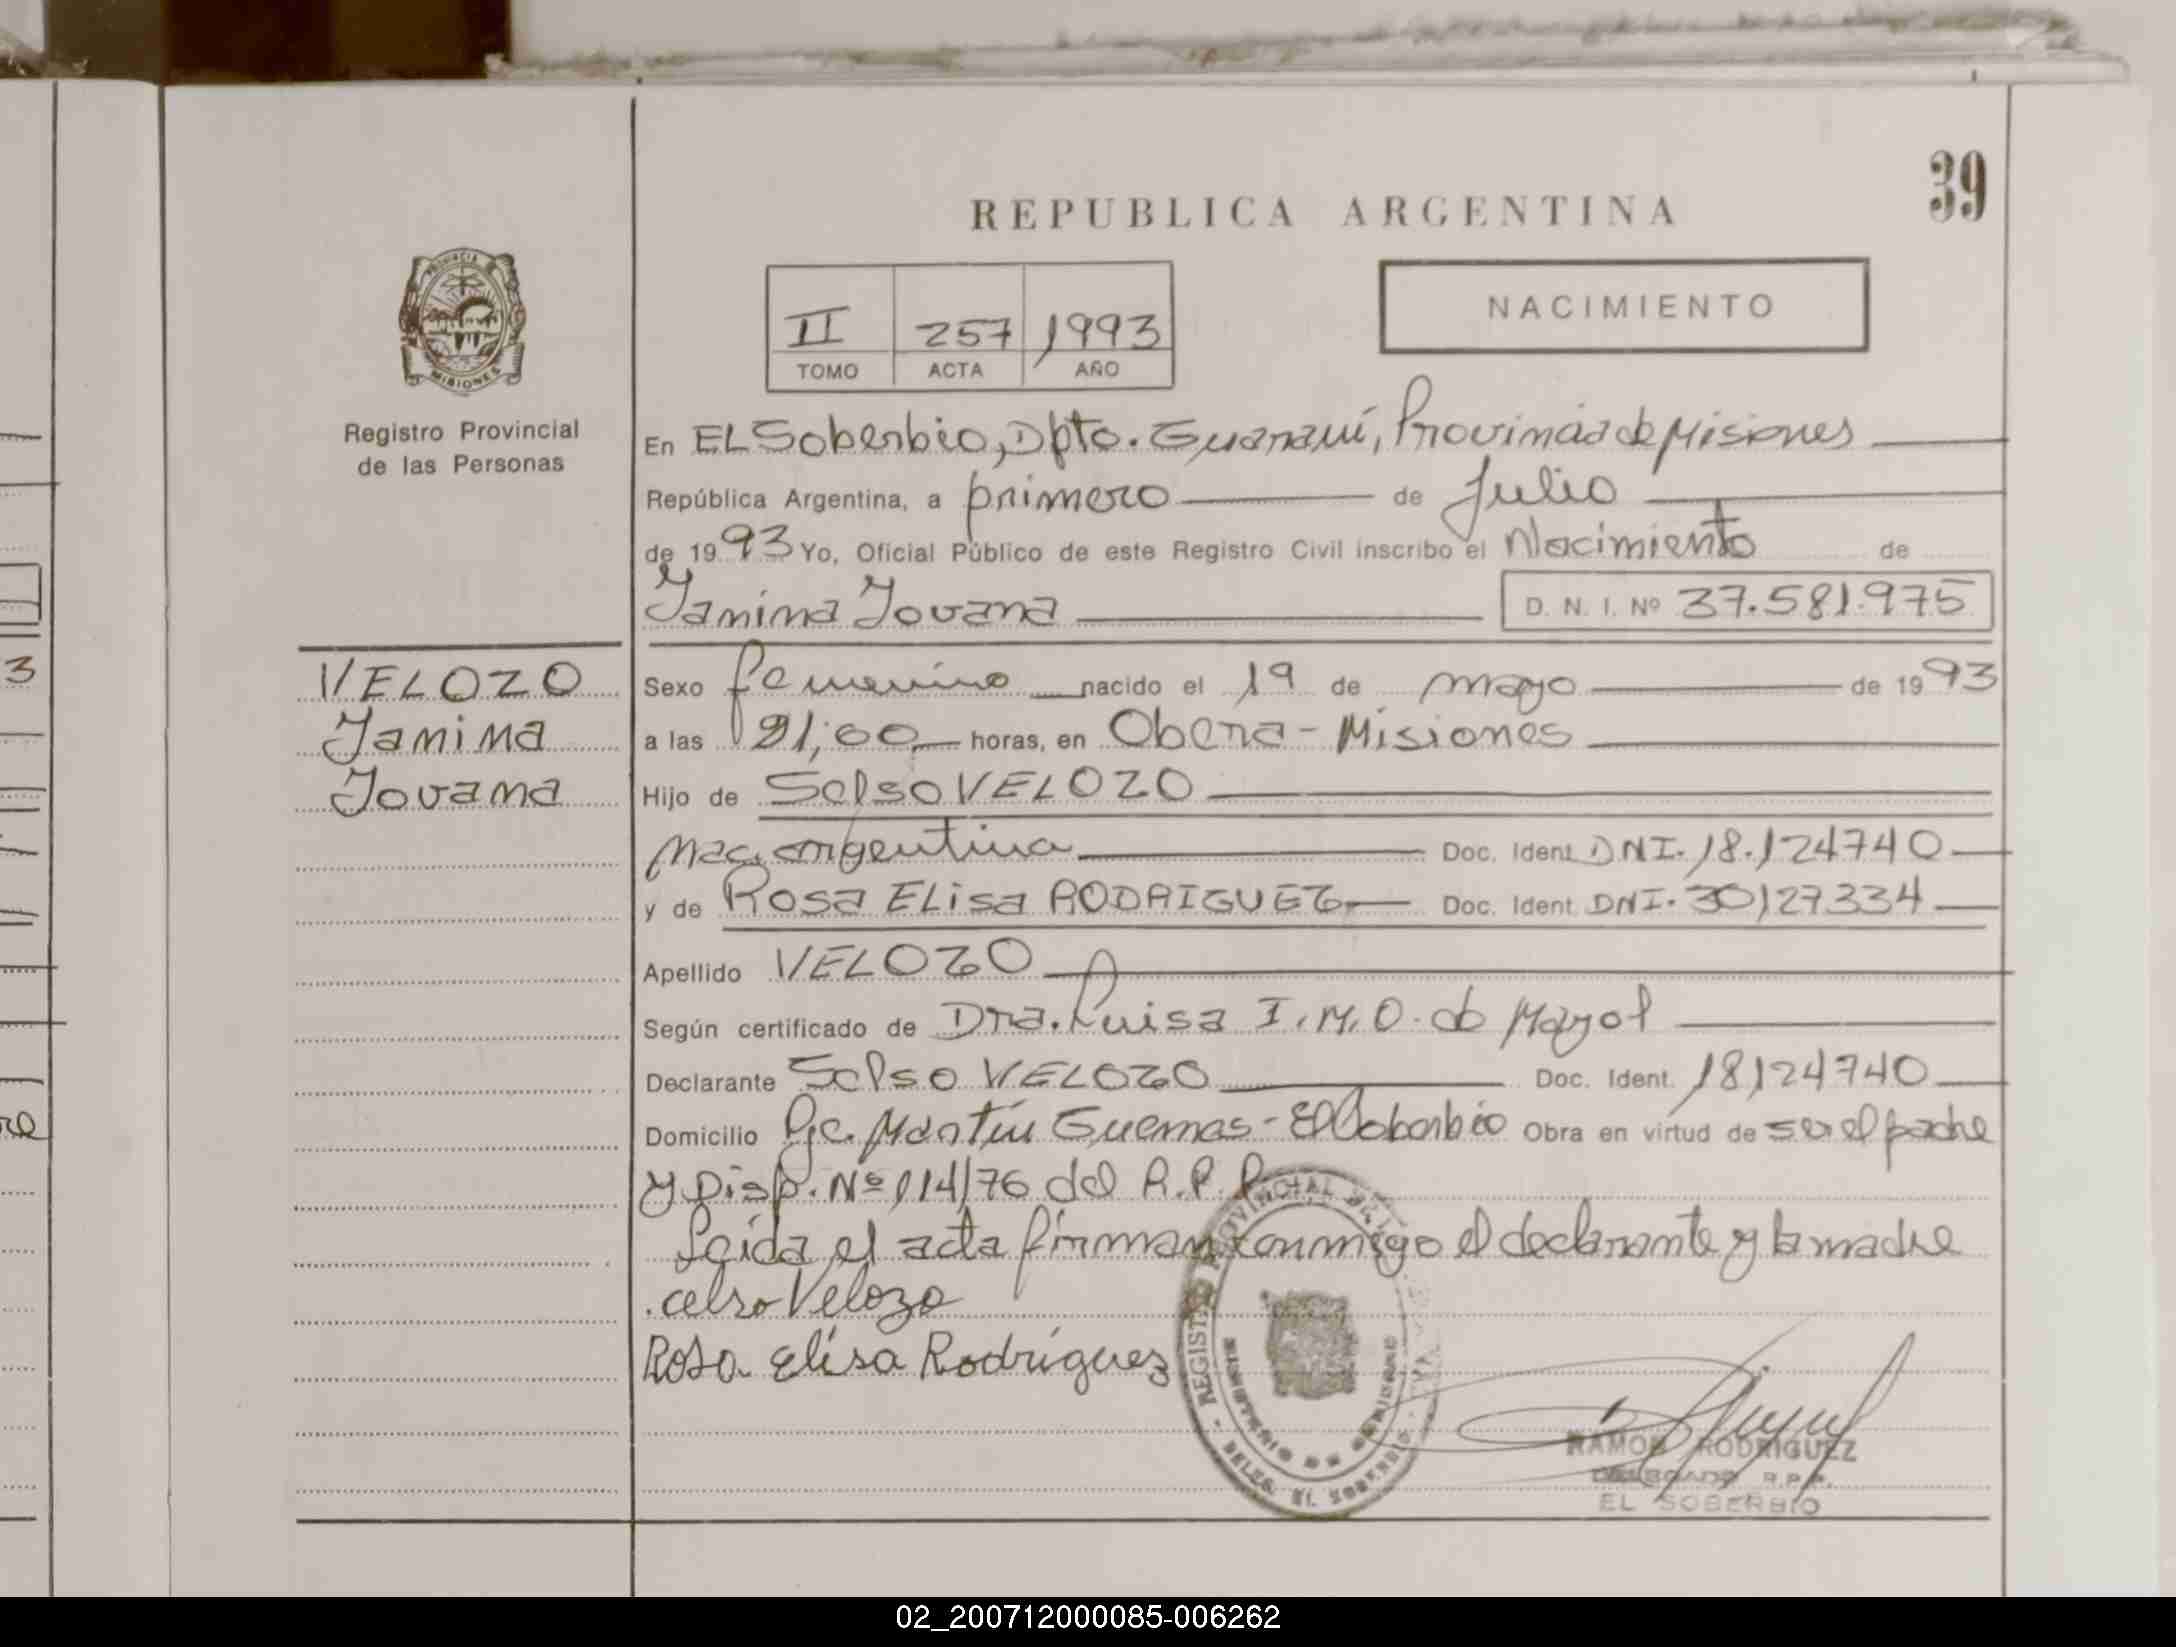 39
REPUBLICA ARGENTINA
PROVINCIA DE
MISIONES
Registro Provincial
de las Personas
II 257 1993
TOMO ACTA AÑO
NACIMIENTO
En EL Soberbio, Dpto. Guaraní, Provincia de Misiones
República Argentina, a primero de Julio
de 1993 Yo, Oficial Público de este Registro Civil inscribo el Nacimiento de
Yanina Yovana D. N. I. Nº 37.581.975
VELOZO
Yanina
Yovana
Sexo femenino nacido el 19 de mayo de 1993
a las 21,00 horas, en Obera - Misiones
Hijo de Selso VELOZO
Nac. argentina Doc. Ident. DNI. 18.124740
y de Rosa ELisa RODRIGUEZ Doc. Ident. DNI. 30127334
Apellido VELOZO
Según certificado de Dra. Luisa I. M. O. de Mayol
Declarante Selso VELOZO Doc. Ident. 18124740
Domicilio Pje. Martín Guemes - El Soberbio Obra en virtud de ser el padre
y Disp. Nº 114/76 del R.P.P.
Leida el acta firman conmigo el declarante y la madre
celso Velozo
Rosa Elisa Rodríguez
REGISTRO PROVINCIAL DE
MINISTERIO DE GOBIERNO
DELEG. EL SOBERBIO
RAMON RODRIGUEZ
DELEGADO R.P.P.
EL SOBERBIO
3
re
02_200712000085-006262